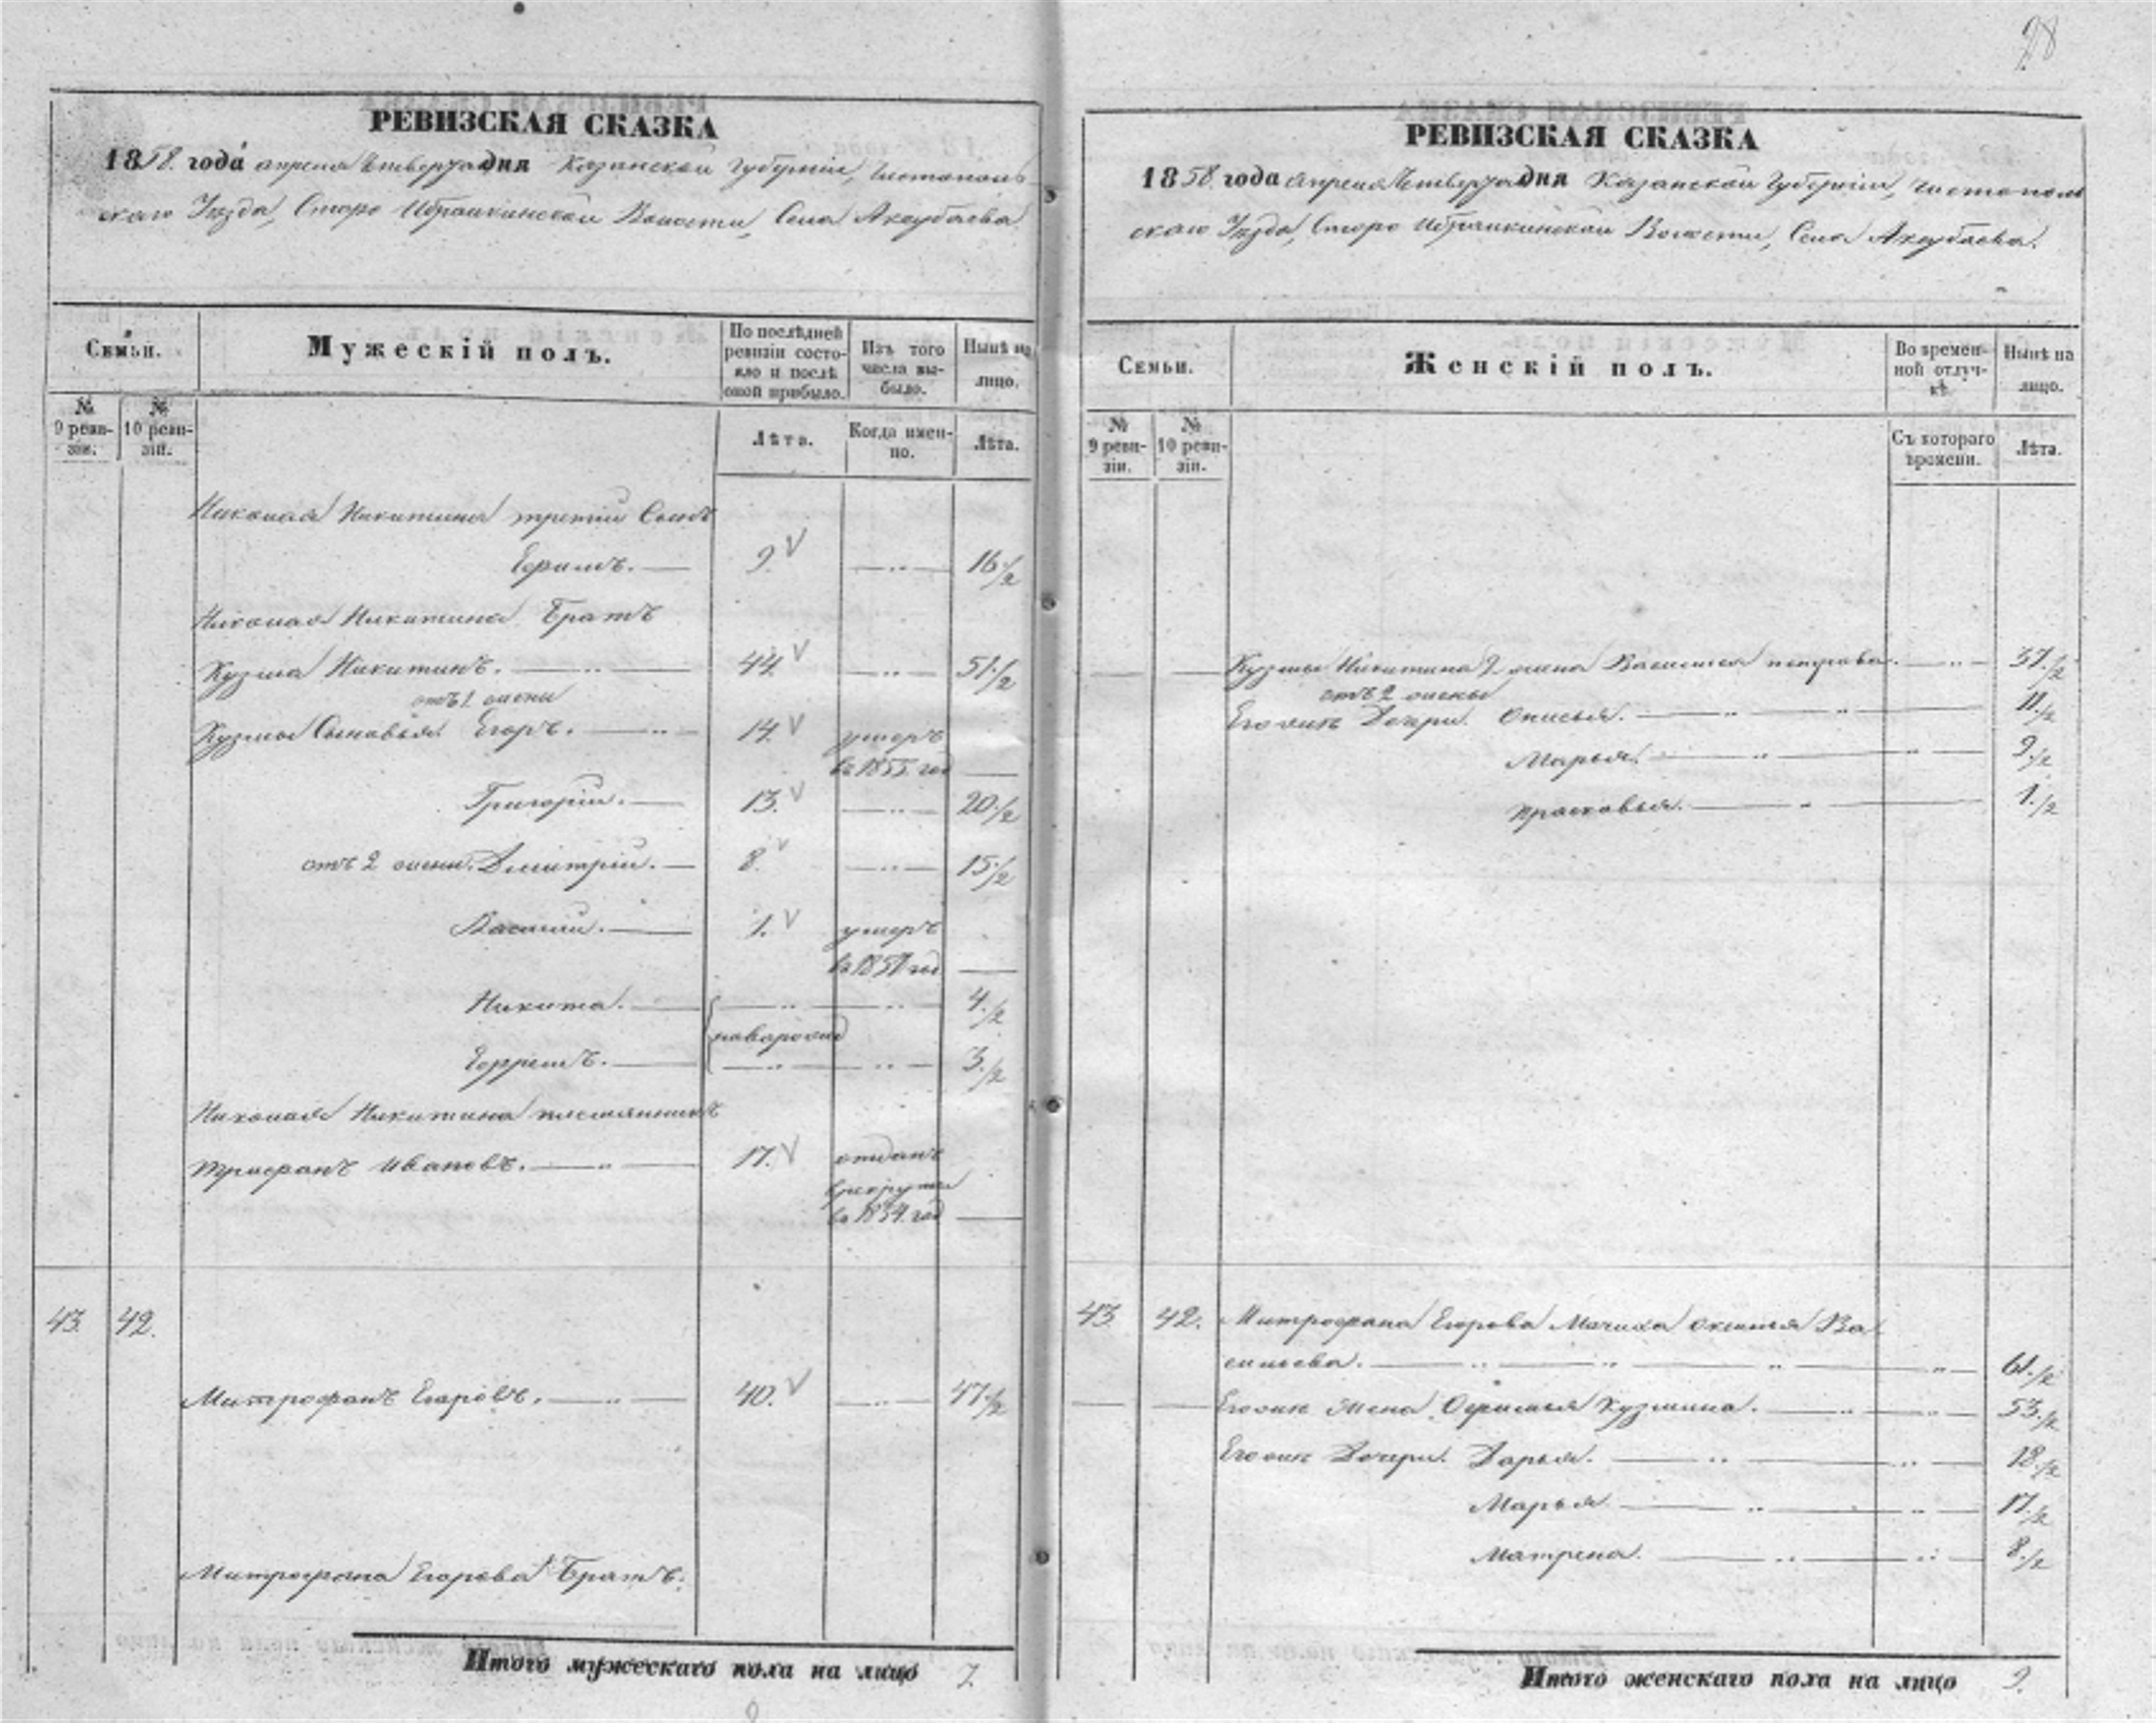 28
РЕВИЗСКАЯ СКАЗКА
1858. года апреля четвертаго дня Казанской Губернiи, Чистополь
скаго Уѣзда, Старо Ибрайкинской Волости, Села Аксубаева
Семьи.
Мужескій полъ.
По послѣдней ревизіи состояло и послѣ оной прибыло.
Изъ того числа выбыло.
Нынѣ на лицо.
№ 9 ревизіи.
№ 10 ревизіи.
Лѣта.
Когда именно.
Лѣта.
Николая Никитина третий Сынъ
Ефимъ. 9. 16 1/2
Николая Никитина Братъ
Кузма Никитинъ. 44. 51 1/2
отъ 1 жены
Кузмы Сыновья Егоръ. 14. умеръ
въ 1855 год
Григорiй. 13. 20 1/2
отъ 2 жены. Дмитрiй. 8. 15 1/2
Василий. 1. умеръ
въ год
Никита. 4 1/2
новарожде
Ефремъ. 3 1/2
Николая Никитина племянникъ
Трифанъ Ивановъ. 17. отданъ
в рекруты
въ 1854 год
43. 42.
Митрофанъ Егоровъ. 40. 47 1/2
Митрофана Егорова Братъ.
Итого мужескаго пола на лицо 7.
РЕВИЗСКАЯ СКАЗКА
1858. года апреля четвертаго дня Казанской Губернiи, Чистополь
скаго Уѣзда, Старо Ибрайкинской Волости, Села Аксубаева.
Семьи.
Женскій полъ.
Во временной отлучкѣ.
Нынѣ на лицо.
№ 9 ревизіи.
№ 10 ревизіи.
Съ котораго времени.
Лѣта.
Кузмы Никитина 2 жена Василиса петрова. 37 1/2
отъ 2 жены
Его жик Дочери. Анисья. 11 1/2
Марья. 9 1/2
прасковья. 1 1/2
43 42. Митрофана Егорова Мачиха Ва
сильева. 61 1/2
Его жик жена Кузмина. 53 1/2
Его жик Дочери. Дарья. 18 1/2
Марья 17 1/2
Матрена. 8 1/2
Итого женскаго пола на лицо 9.